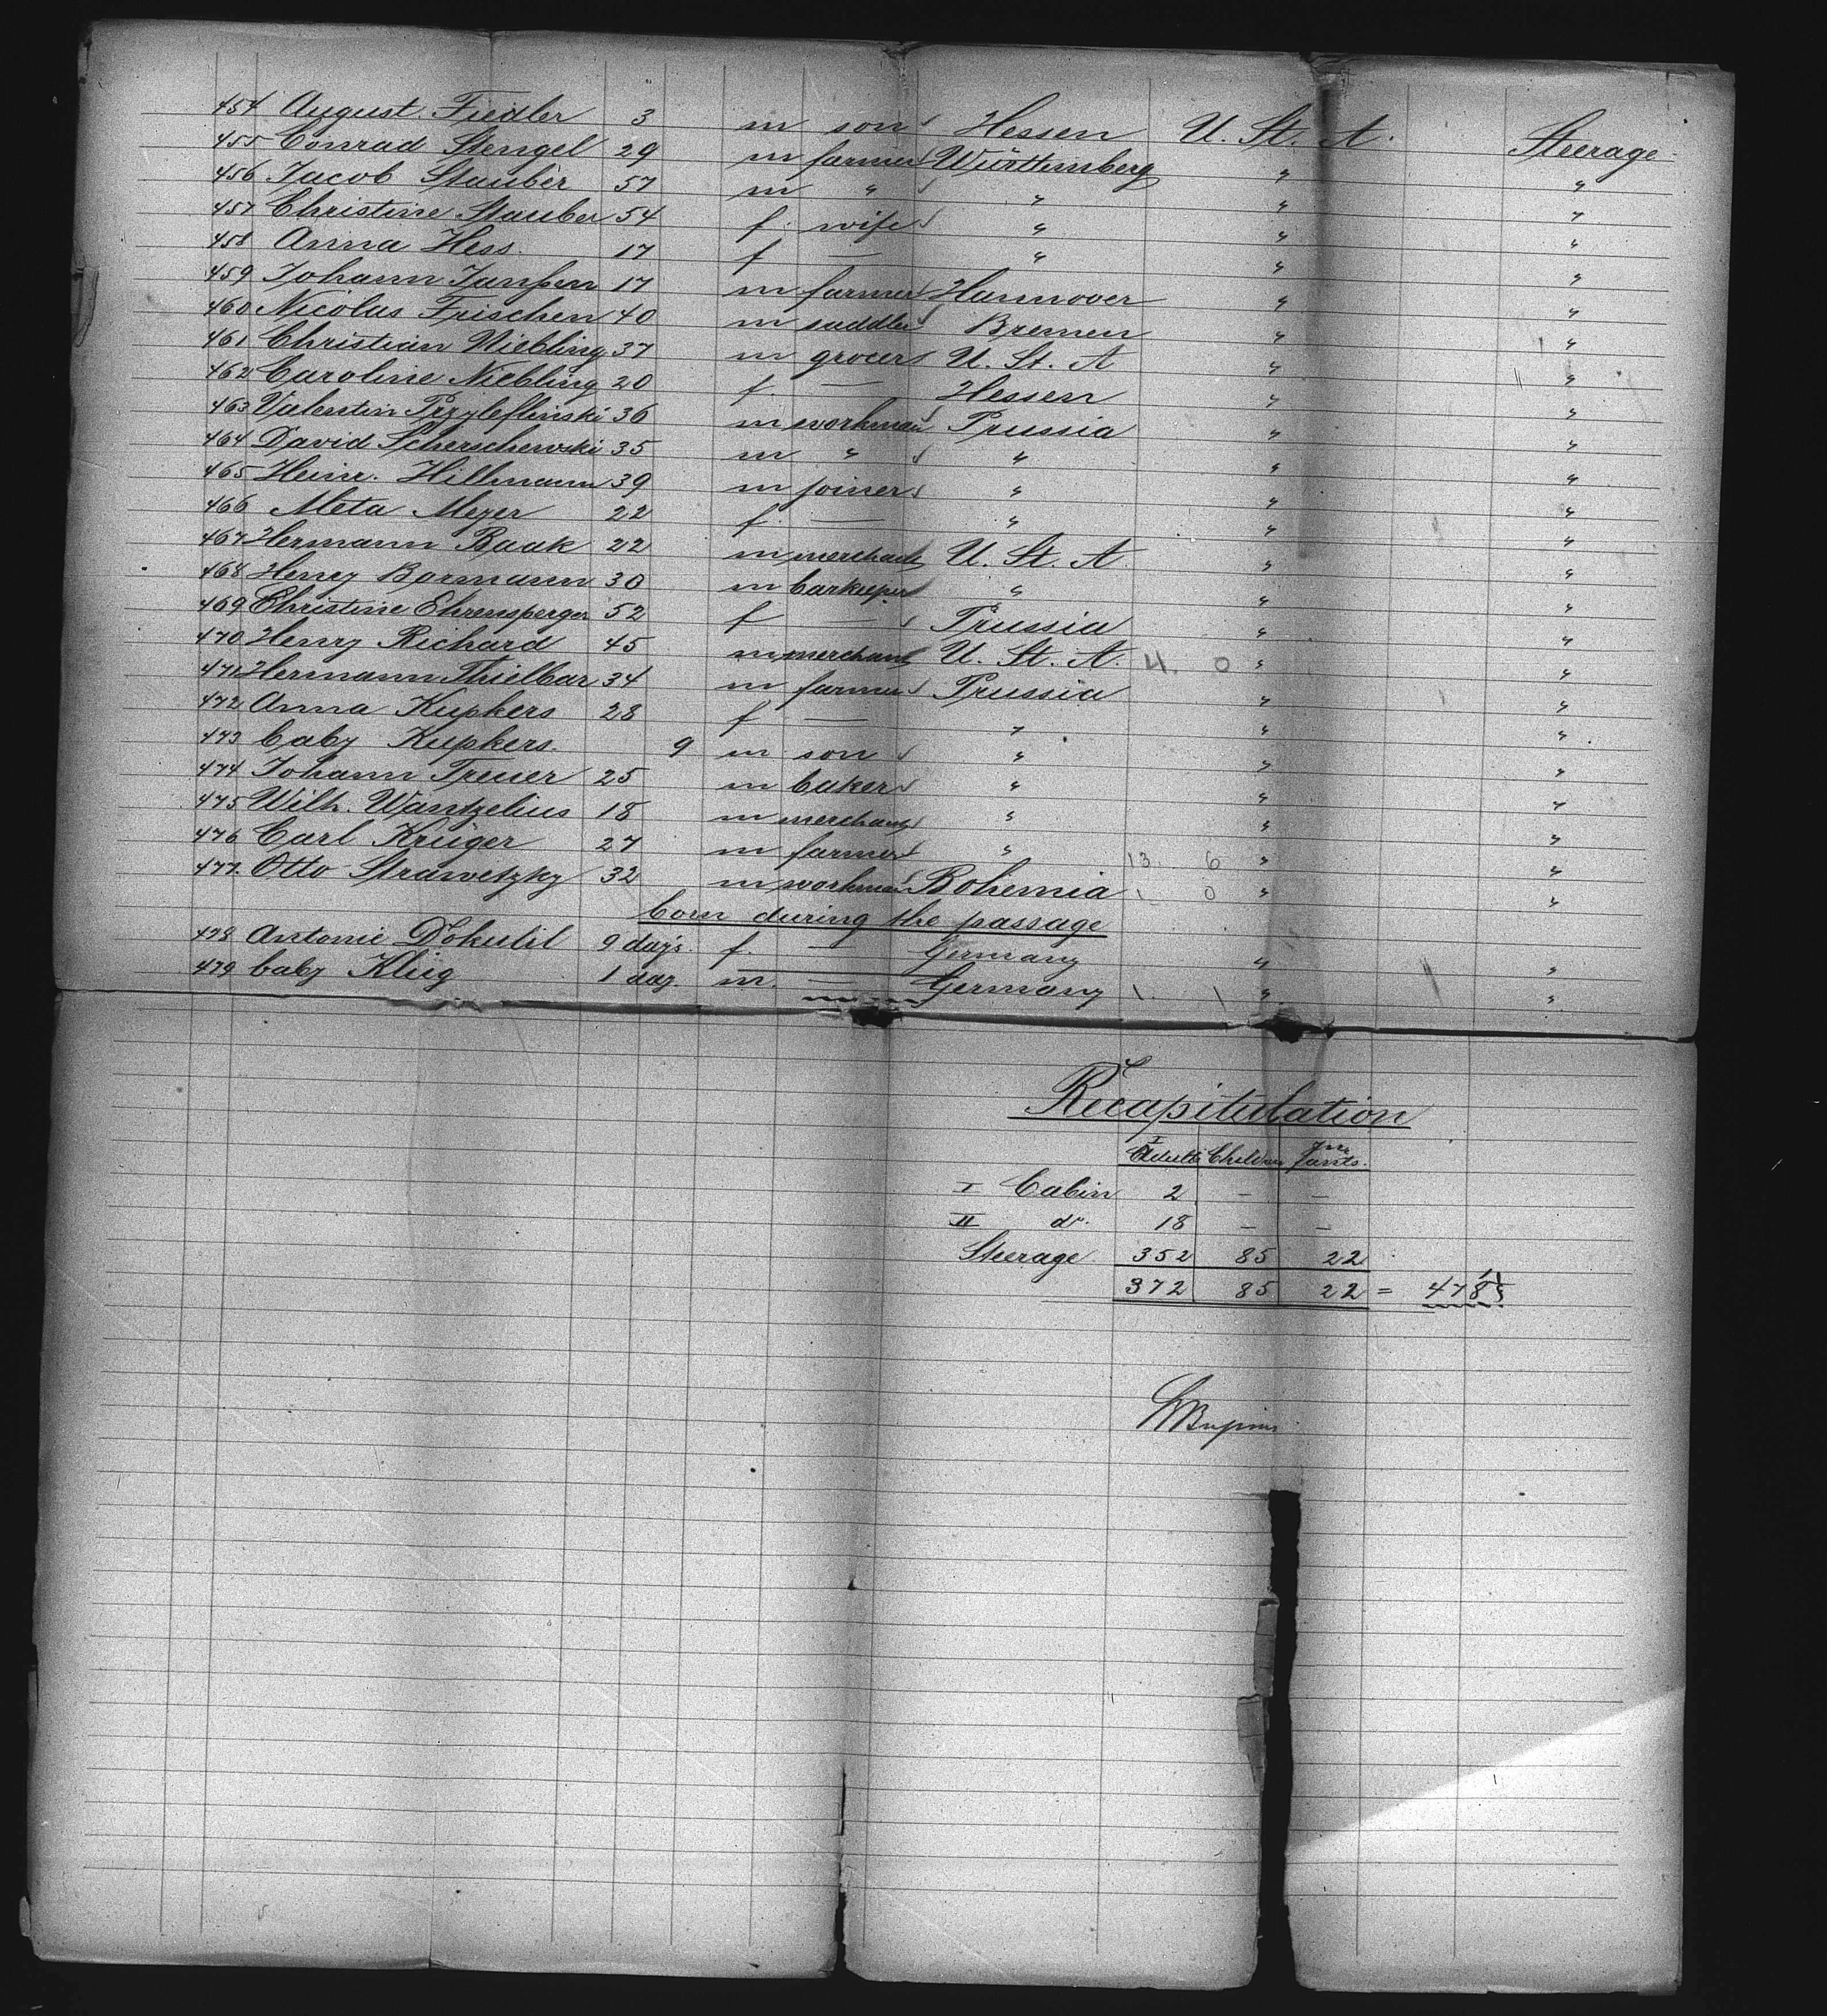 454 August Fiedler 3 m son Hessen U. St. A. Steerage
455 Conrad Stengel 29 m farmer Württemberg " "
456 Jacob Stauber 57 m " " " "
457 Christine Stauber 54 f. wife " " "
458 Anna Hess. 17 f — " " "
459 Johann Janssen 17 m farmer Hannover " "
460 Nicolas Frischen 40 m saddler Bremen " "
461 Christian Niebling 37 m grocer U. St. A " "
462 Caroline Niebling 20 f. — Hessen " "
463 Valentin 36 m workman Prussia " "
464 David Scherschewski 35 m " " " "
465 Heinr. Hillmann 39 m joiner " " "
466 Meta Meyer 22 f. — " " "
467 Hermann Baak 22 m merchant U. St. A. " "
468 Henry Bormann 30 m barkeeper " " "
469 Christine Ehrensperger 52 f — Prussia " "
470 Henry Richard 45 m merchant U. St. A. 4. 0 " "
471 Hermann Thielbar 34 m farmer Prussia " "
472 Anna Kupkers 28 f — " " "
473 baby Kupkers. 9 m son " " "
474 Johann Treuer 25 m baker " " "
475 Wilh. Wantzelius 18 m merchant " " "
476 Carl Krüger 27 m farmer " 13. 6 " "
477. Otto Strawetzky 32 m workman Bohemia 1 0 " "
born during the passage
478 Antonie Dokulil 9 days. f. — Germany " "
479 baby Klug 1 day. m. — Germany 1. 1 " "
Recapitulation
Adults Children Infants.
I Cabin 2 — —
II do. 18 — —
Steerage 352 85 22
372 85 22 = 478